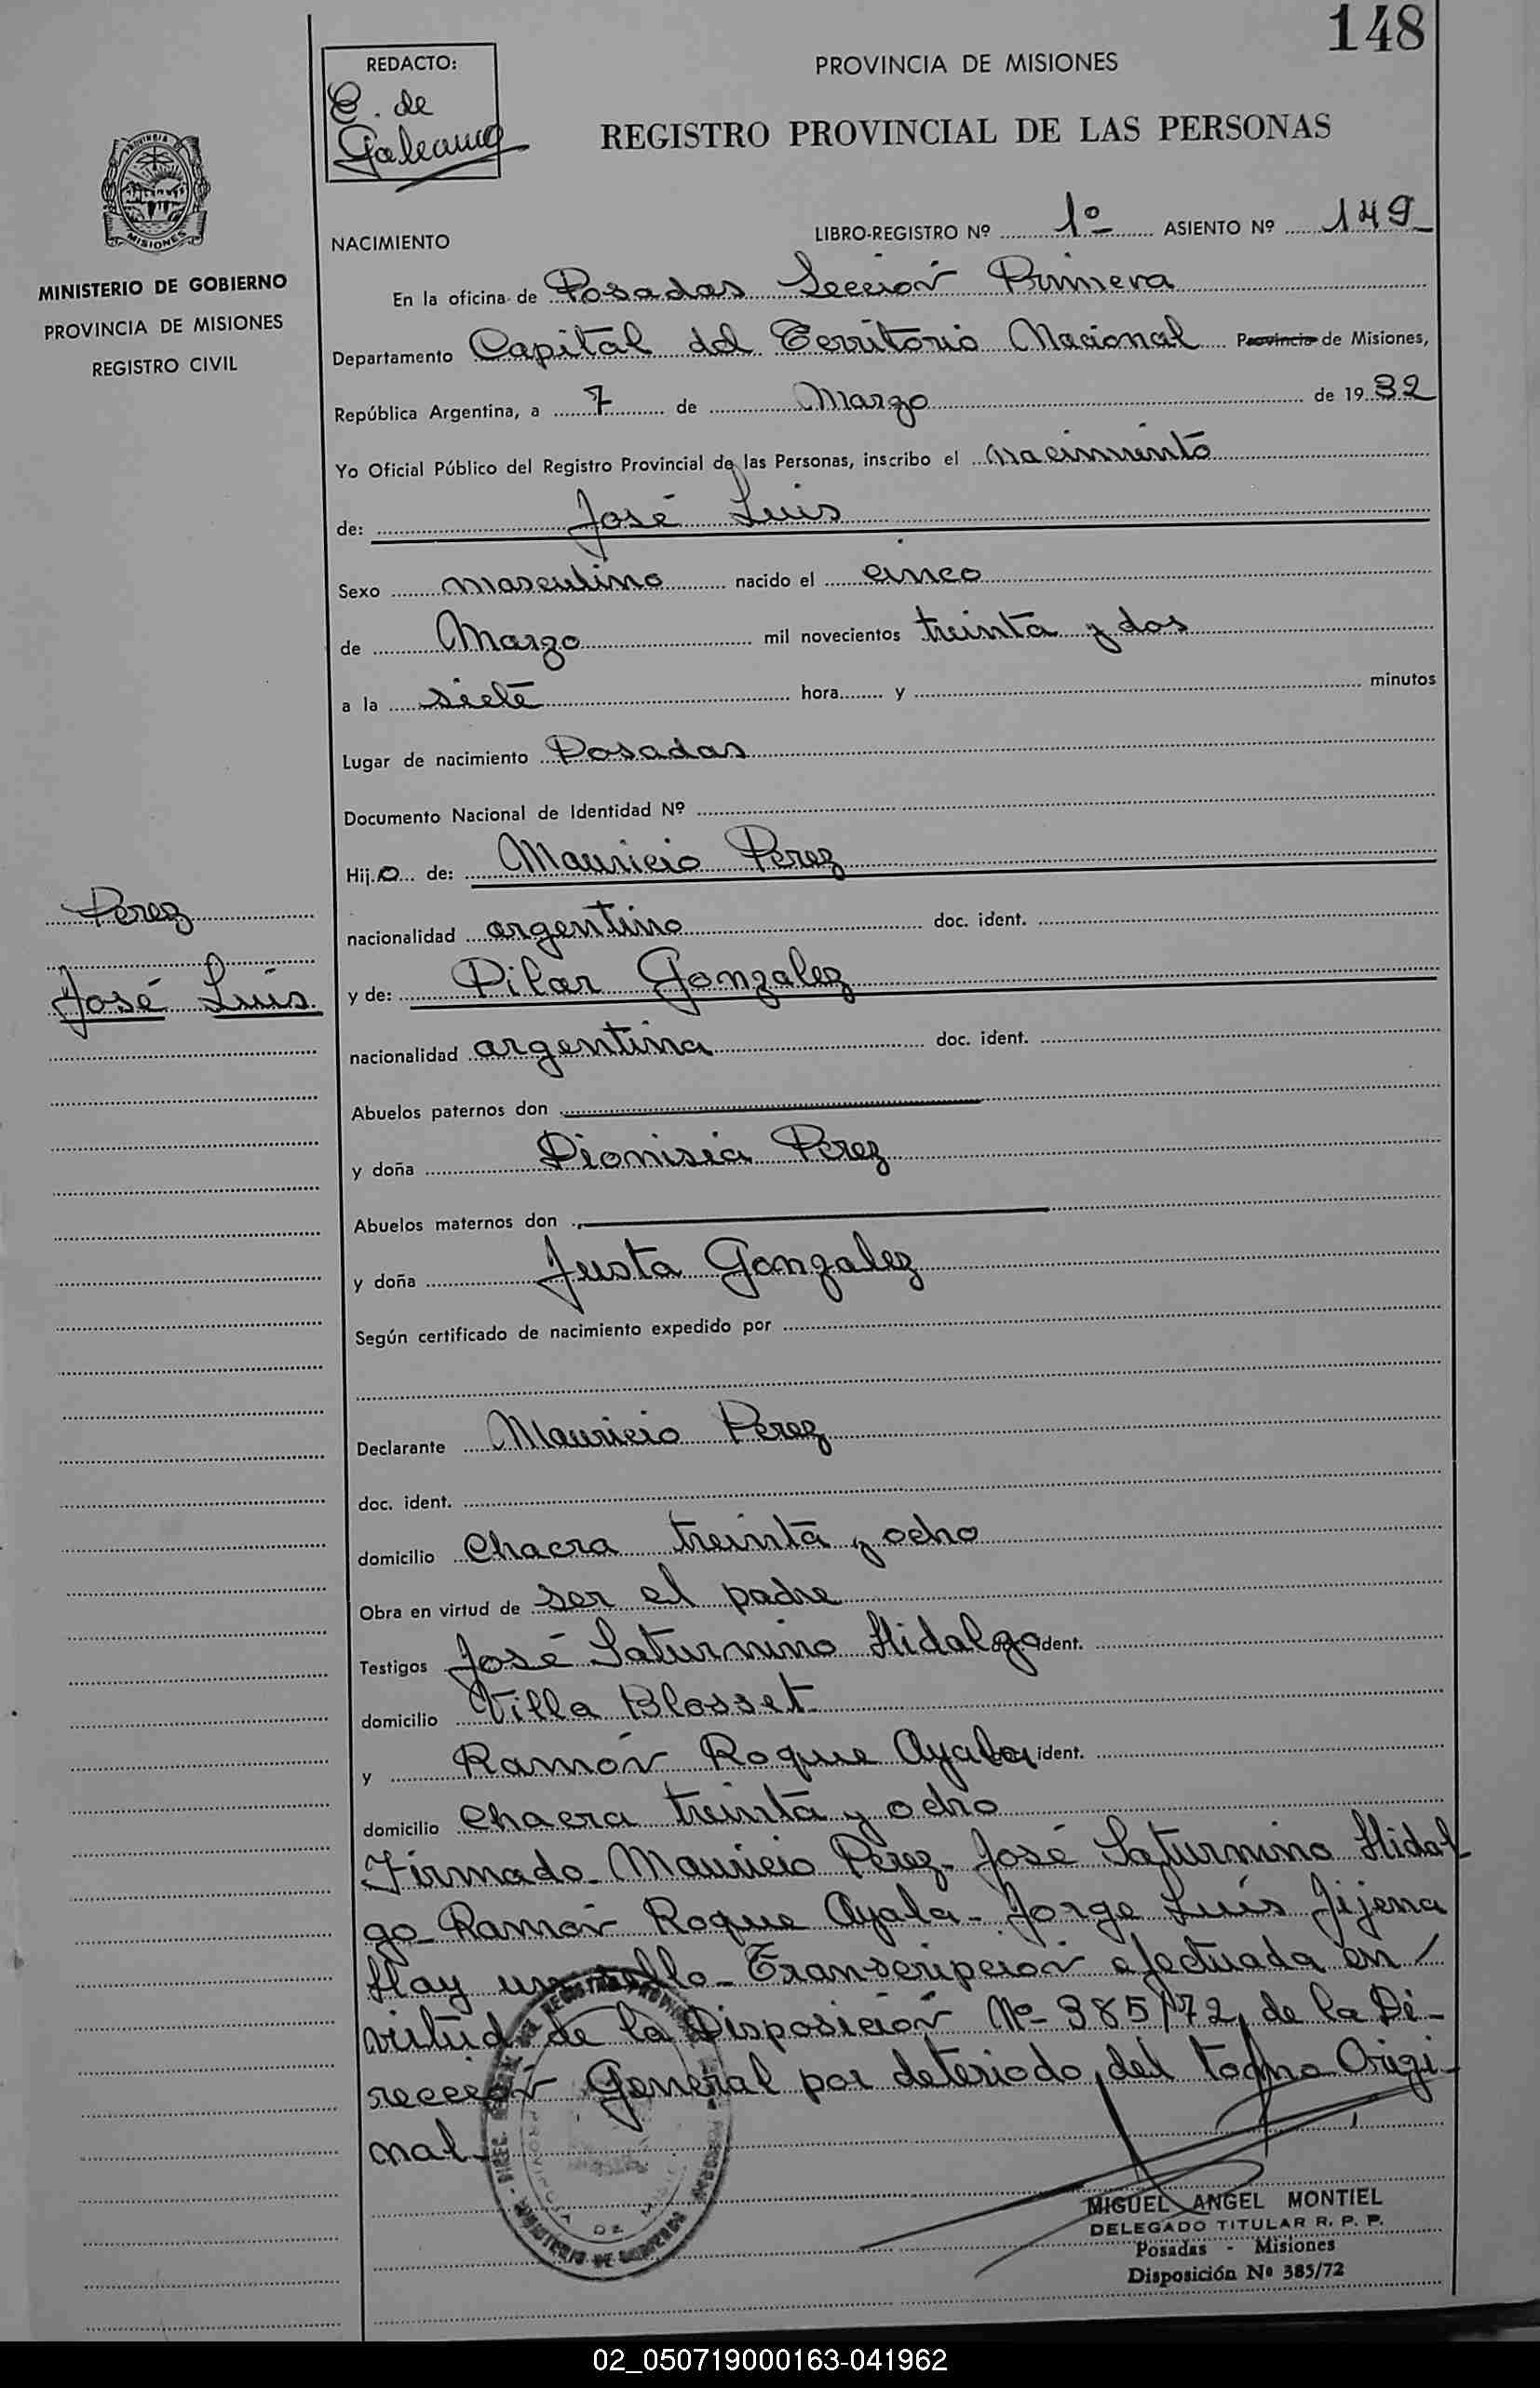 148
REDACTO:
C. de
Galeano
PROVINCIA DE MISIONES
REGISTRO PROVINCIAL DE LAS PERSONAS
MISIONES
MINISTERIO DE GOBIERNO
PROVINCIA DE MISIONES
REGISTRO CIVIL
NACIMIENTO
LIBRO-REGISTRO Nº 1º ASIENTO Nº 149
En la oficina de Posadas Sección Primera
Departamento Capital del Territorio Nacional Provincia de Misiones,
República Argentina, a 7 de Marzo de 1932
Yo Oficial Público del Registro Provincial de las Personas, inscribo el nacimiento
de: José Luis
Sexo masculino nacido el cinco
de Marzo mil novecientos treinta y dos
a la siete hora y minutos
Lugar de nacimiento Posadas
Documento Nacional de Identidad Nº
Hijo de: Mauricio Perez
Perez
nacionalidad argentino doc. ident.
José Luis
y de: Pilar Gonzalez
nacionalidad argentina doc. ident.
Abuelos paternos don
y doña Dionisia Perez
Abuelos maternos don
y doña Justa Gonzalez
Según certificado de nacimiento expedido por
Declarante Mauricio Perez
doc. ident.
domicilio Chacra treinta y ocho
Obra en virtud de ser el padre
Testigos José Saturnino Hidalgo ident.
domicilio Villa Blosset
y Ramón Roque Ayala ident.
domicilio Chacra treinta y ocho
Firmado Mauricio Pérez- José Saturnino Hidal
go- Ramón Roque Ayala- Jorge Luis Jijena
Hay un sello- Transcripción efectuada en
virtud de la Disposición Nº 385/72, de la Di-
rección General por deteriodo del tomo Origi-
nal-
MIGUEL ANGEL MONTIEL
DELEGADO TITULAR R. P. P.
Posadas - Misiones
Disposición Nº 385/72
02_050719000163-041962